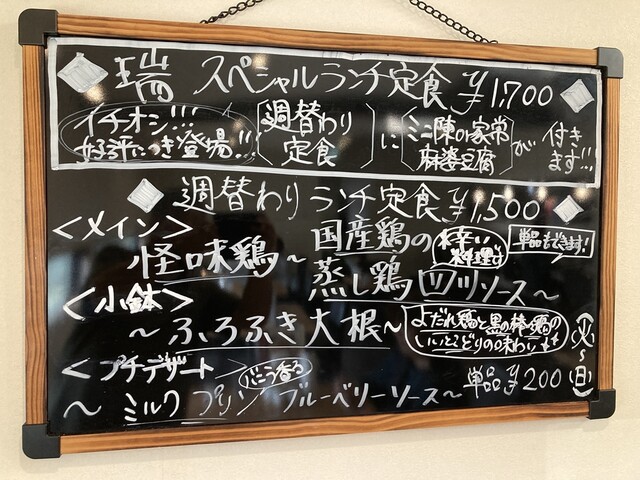 瑞 スペシャルランチ定食 ¥1,700
イチオシ!!!
好評につき登場!!!
週替わり
定食
に
ミニ陳の家常
麻婆豆腐
が
付き
ます!!!
週替わり ランチ定食 ¥1,500
<メイン>
怪味鶏~国産鶏の
蒸し鶏 四川ソース~
辛い
料理です
単品もできます!
<小鉢>
~ふろふき大根~
よだれ鶏と黒の棒々鶏の
いいとこどりの味わい
<プチデザート>
バニラ香る
~ミルクプリン ブルーベリーソース~
単品¥200
(火)
~
(日)